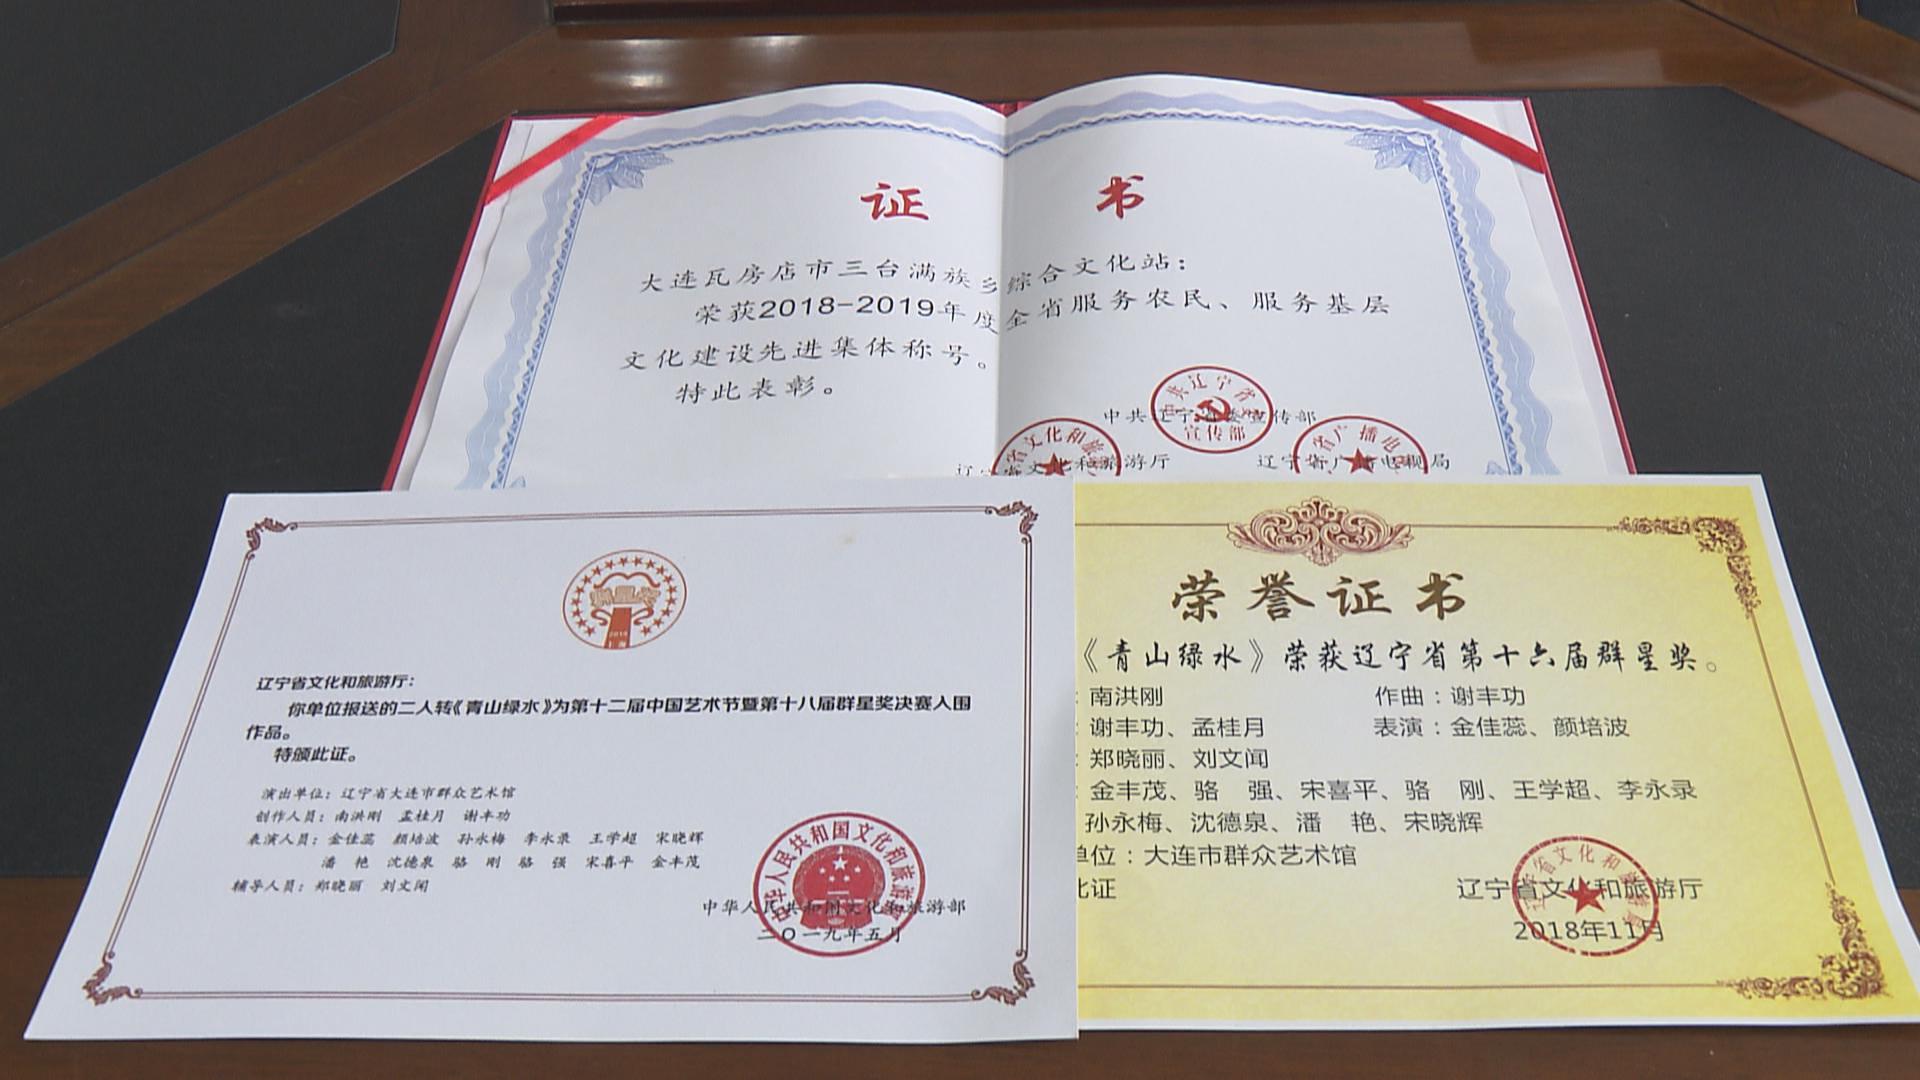 证 书
大连瓦房店市三台满族乡综合文化站：
荣获2018-2019年度全省服务农民、服务基层
文化建设先进集体称号。
特此表彰。
中共辽宁省委宣传部
中共辽宁省委
宣传部
辽宁省文化和旅游厅
辽宁省广播电视局
省文化和旅
省广播电
2019
上海
辽宁省文化和旅游厅：
你单位报送的二人转《青山绿水》为第十二届中国艺术节暨第十八届群星奖决赛入围
作品。
特颁此证。
演出单位：辽宁省大连市群众艺术馆
创作人员：南洪刚 孟桂月 谢丰功
表演人员：金佳蕊 颜培波 孙永梅 李永录 王学超 宋晓辉
潘 艳 沈德泉 骆 刚 骆 强 宋喜平 金丰茂
辅导人员：郑晓丽 刘文闻
中华人民共和国文化和旅游部
中华人民共和国文化和旅游部
二〇一九年五月
荣誉证书
《青山绿水》荣获辽宁省第十六届群星奖。
：南洪刚 作曲：谢丰功
：谢丰功、孟桂月 表演：金佳蕊、颜培波
：郑晓丽、刘文闻
：金丰茂、骆 强、宋喜平、骆 刚、王学超、李永录
孙永梅、沈德泉、潘 艳、宋晓辉
单位：大连市群众艺术馆
此证 辽宁省文化和旅游厅
2018年11月